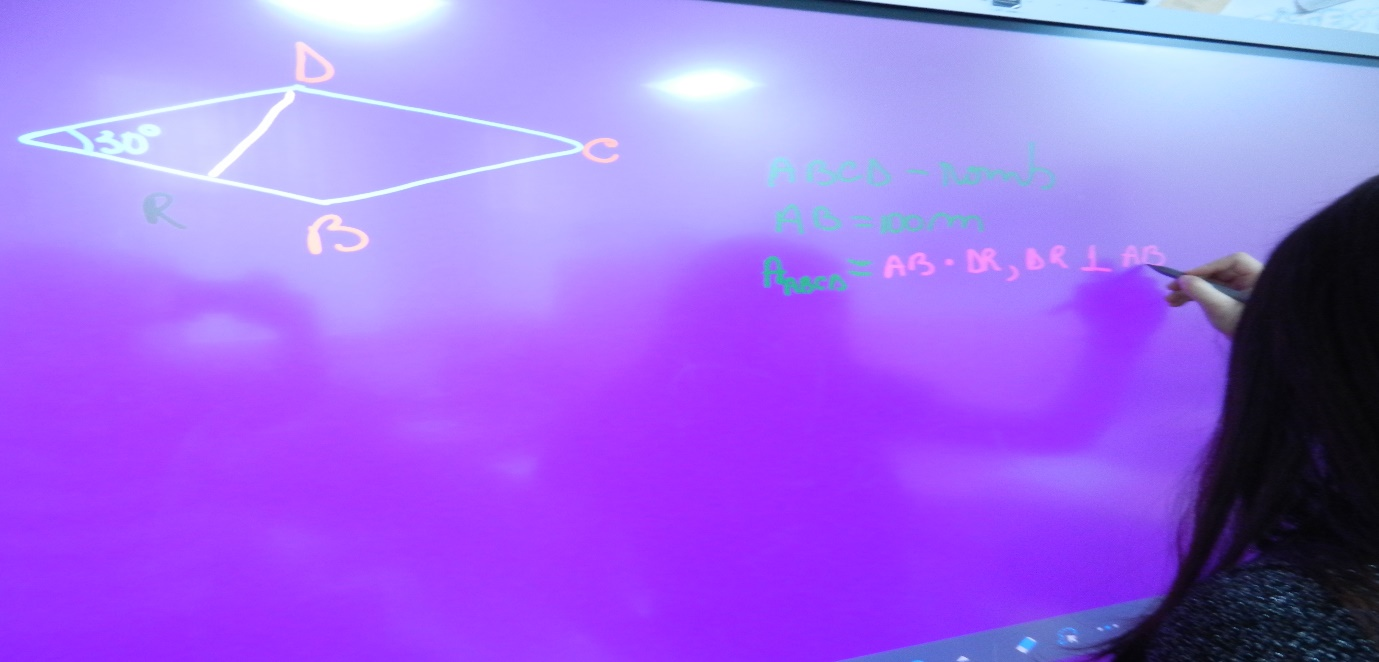 D
30°
C
R
B
ABCD - romb
AB = 100 m
A ABCD = AB · DR, DR ⊥ AB